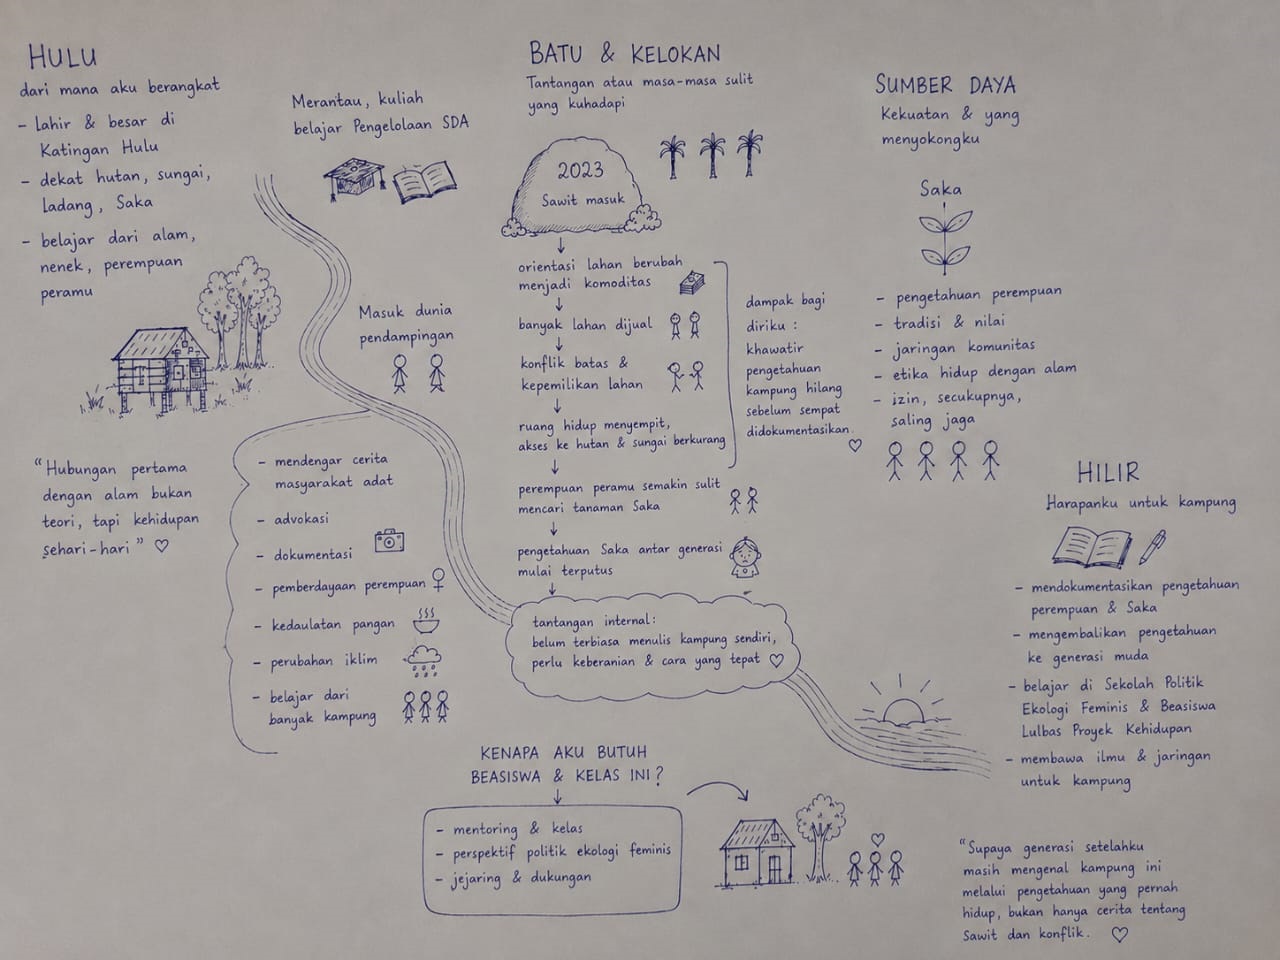 HULU
dari mana aku berangkat
- lahir & besar di
Katingan Hulu
- dekat hutan, sungai,
Ladang, Saka
- belajar dari alam,
nenek, perempuan
peramu
"Hubungan pertama
dengan alam bukan
teori, tapi kehidupan
sehari-hari" ♡
Merantau, kuliah
belajar Pengelolaan SDA
Masuk dunia
pendampingan
- mendengar cerita
masyarakat adat
- advokasi
- dokumentasi
- pemberdayaan perempuan
- kedaulatan pangan
- perubahan iklim
- belajar dari
banyak kampung
BATU & KELOKAN
Tantangan atau masa-masa sulit
yang kuhadapi
2023
Sawit masuk
orientasi lahan berubah
menjadi komoditas
banyak lahan dijual
konflik batas &
kepemilikan lahan
ruang hidup menyempit,
akses ke hutan & sungai berkurang
perempuan peramu semakin sulit
mencari tanaman Saka
pengetahuan Saka antar generasi
mulai terputus
tantangan internal:
belum terbiasa menulis kampung sendiri,
perlu keberanian & cara yang tepat ♡
dampak bagi
diriku :
khawatir
pengetahuan
kampung hilang
sebelum sempat
didokumentasikan.
♡
SUMBER DAYA
Kekuatan & yang
menyokongku
Saka
- pengetahuan perempuan
- tradisi & nilai
- jaringan komunitas
- etika hidup dengan alam
- izin, secukupnya,
saling jaga
HILIR
Harapanku untuk kampung
- mendokumentasikan pengetahuan
perempuan & Saka
- mengembalikan pengetahuan
ke generasi muda
- belajar di Sekolah Politik
Ekologi Feminis & Beasiswa
Lulbas Proyek Kehidupan
- membawa ilmu & jaringan
untuk kampung
KENAPA AKU BUTUH
BEASISWA & KELAS INI?
- mentoring & kelas
- perspektif politik ekologi feminis
- jejaring & dukungan
"Supaya generasi setelahku
masih mengenal kampung ini
melalui pengetahuan yang pernah
hidup, bukan hanya cerita tentang
Sawit dan konflik. ♡